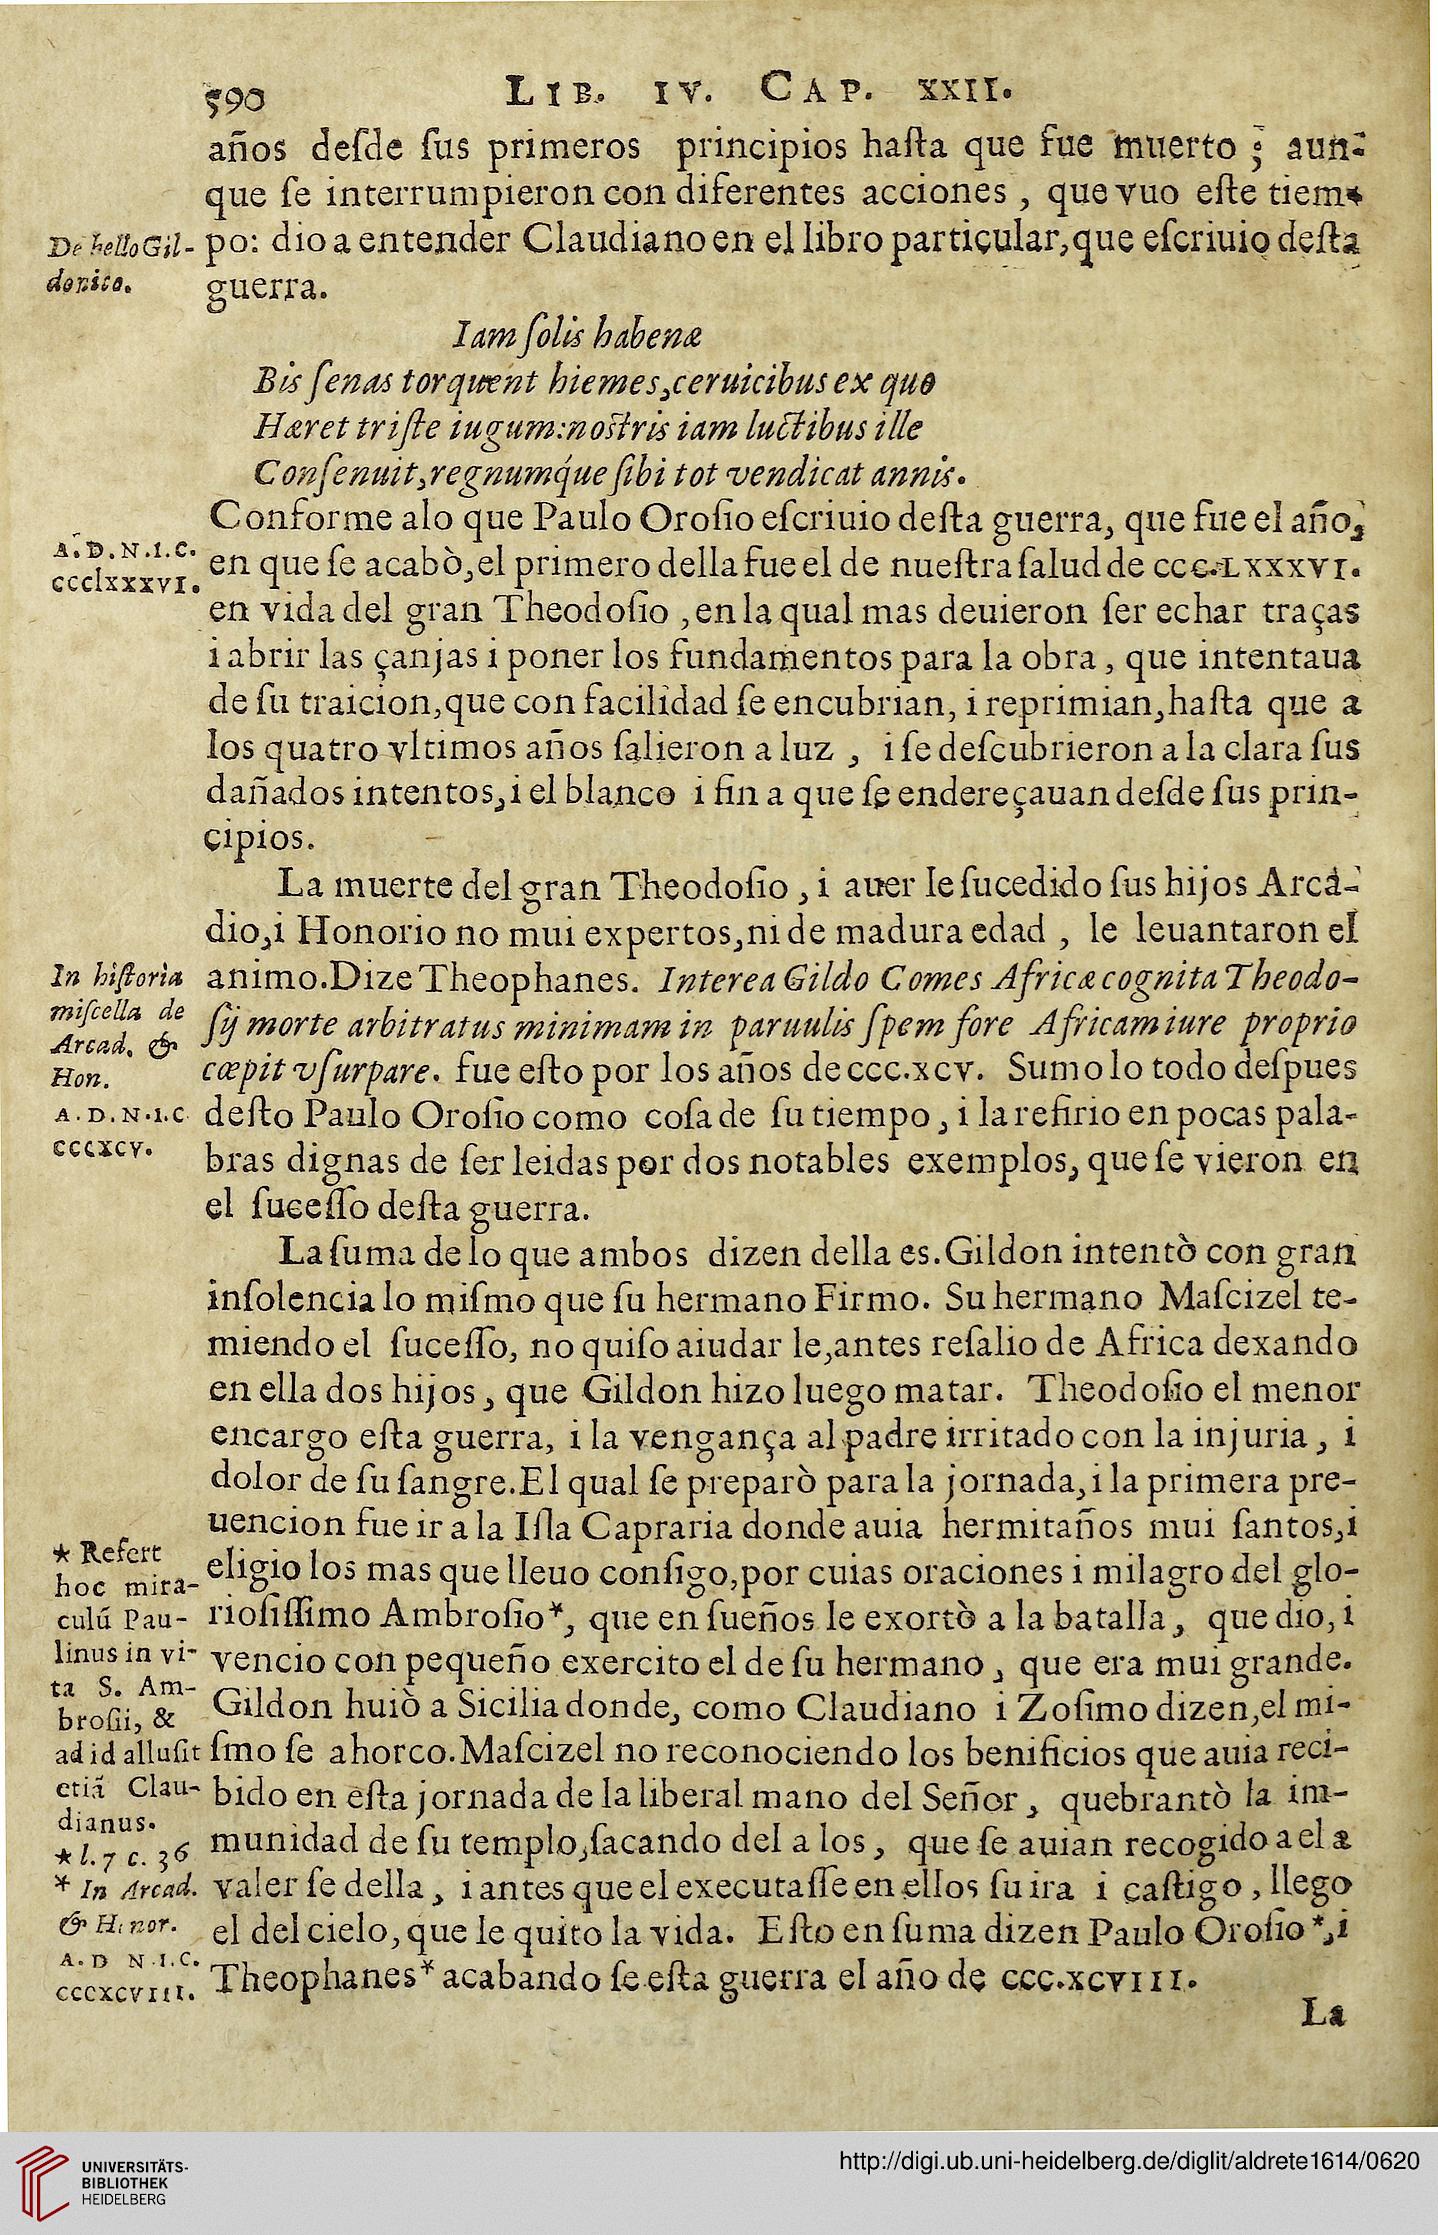 590 LIB. IV. CAP. XXII.
años deſde ſus primeros principios haſta que fue muerto ; aun-
que ſe interrumpieron con diferentes acciones , que vuo eſte tiem-
De bello Gil-
donico.
po: dio a entender Claudiano en el libro particular, que eſcriuio deſta
guerra.
Iam ſolis habenæ
Bis ſenas torquent hiemes, ceruicibus ex quo
Hæret triſte iugum: noſtris iam luctibus ille
Conſenuit, regnumq́ue ſibi tot vendicat annis.
Conforme a lo que Paulo Oroſio eſcriuio deſta guerra, que fue el año,
A. D. N. I. C.
ccclxxxvi.
en que ſe acabò, el primero della fue el de nueſtra ſalud de ccc.lxxxvi.
en vida del gran Theodoſio , en la qual mas deuieron ſer echar traças
i abrir las çanjas i poner los fundamentos para la obra , que intentaua
de ſu traicion, que con facilidad ſe encubrian, i reprimian, haſta que a
los quatro vltimos años ſalieron a luz , i ſe deſcubrieron a la clara ſus
dañados intentos, i el blanco i fin a que ſe endereçauan deſde ſus prin-
cipios.
La muerte del gran Theodoſio , i auer le ſucedido ſus hijos Arca-
dio, i Honorio no mui expertos, ni de madura edad , le leuantaron el
In hiſtoria
miſcella de
Arcad. &
Hon.
animo. Dize Theophanes. Interea Gildo Comes Africæ cognita Theodo-
ſij morte arbitratus minimam in paruulis ſpem fore Africam iure proprio
cœpit vſurpare. fue eſto por los años de ccc.xcv. Sumo lo todo deſpues
A. D. N. I. C
cccxcv.
deſto Paulo Oroſio como coſa de ſu tiempo , i la refirio en pocas pala-
bras dignas de ſer leidas por dos notables exemplos, que ſe vieron en
el ſuceſſo deſta guerra.
La ſuma de lo que ambos dizen della es. Gildon intentò con gran
inſolencia lo miſmo que ſu hermano Firmo. Su hermano Maſcizel te-
miendo el ſuceſſo, no quiſo aiudar le, antes reſalio de Africa dexando
en ella dos hijos , que Gildon hizo luego matar. Theodoſio el menor
encargo eſta guerra, i la vengança al padre irritado con la injuria , i
dolor de ſu ſangre. El qual ſe preparò para la jornada, i la primera pre-
uencion fue ir a la Iſla Capraria donde auia hermitaños mui ſantos, i
* Refert
hoc mira-
culū Pau-
linus in vi-
ta S. Am-
broſii, &
ad id alluſit
etiā Clau-
dianus.
eligio los mas que lleuo conſigo, por cuias oraciones i milagro del glo-
rioſiſſimo Ambroſio*, que en ſueños le exortò a la batalla , que dio, i
vencio con pequeño exercito el de ſu hermano , que era mui grande.
Gildon huiò a Sicilia donde, como Claudiano i Zoſimo dizen, el mi-
ſmo ſe ahorco. Maſcizel no reconociendo los benificios que auia reci-
bido en eſta jornada de la liberal mano del Señor , quebrantò la im-
munidad de ſu templo, ſacando del a los , que ſe auian recogido a el a
* l. 7 c. 36
* In Arcad.
& Honor.
valer ſe della , i antes que el executaſſe en ellos ſu ira i caſtigo , llego
el del cielo, que le quito la vida. Eſto en ſuma dizen Paulo Oroſio*, i
A. D N. I. C.
cccxcviii.
Theophanes* acabando ſe eſta guerra el año de ccc.xcviii.
La
UNIVERSITÄTS-
BIBLIOTHEK
HEIDELBERG
http://digi.ub.uni-heidelberg.de/diglit/aldrete1614/0620